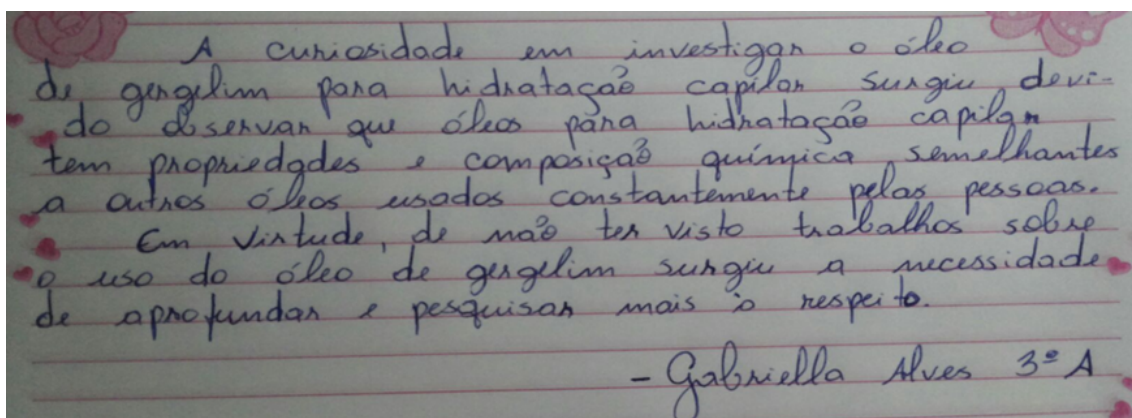 A curiosidade em investigar o óleo
de gergelim para hidratação capilar surgiu devi-
do observar que óleos para hidratação capilar
tem propriedades e composição química semelhantes
a outros óleos usados constantemente pelas pessoas.
Em virtude, de não ter visto trabalhos sobre
o uso do óleo de gergelim surgiu a necessidade
de aprofundar e pesquisar mais à respeito.
- Gabriella Alves 3º A